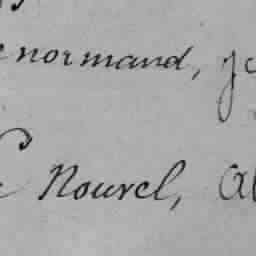 normand, je
Nouvel, Al